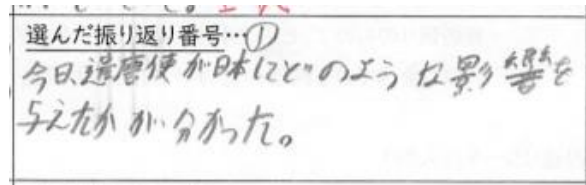 選んだ振り返り番号…①
今日、遣唐使が日本にどのような影響を
与えたかが分かった。